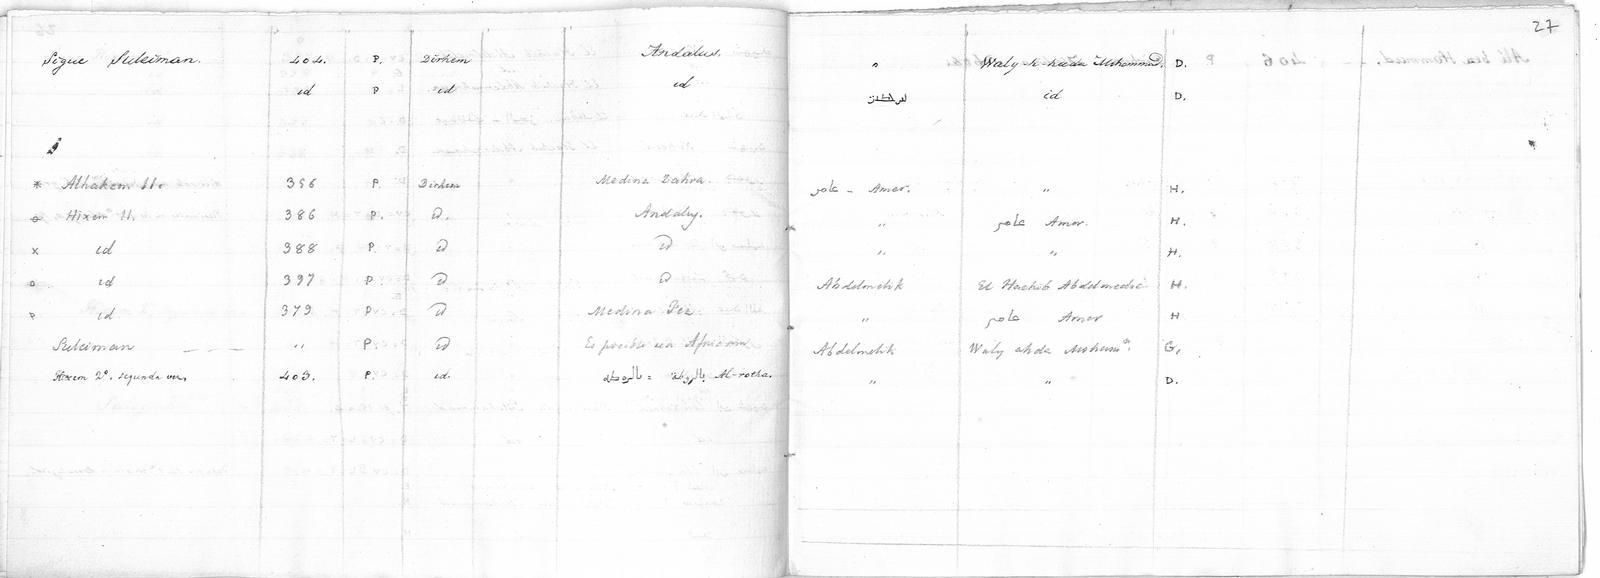 27
Sigue Suleiman. 404. P. Dirhem Andalus. " Waly-l-hada Mohammad. D.
id P id id id D.
* Alhakem II. 356 P. Dirhem Medina Zahra. عامر - Amer. " H.
o Hixem II. 386 P. id. Andaluz. " عامر Amer. H.
x id 388 P. id id " " H.
o id 397 P. id id Abdelmelik El Hachib Abdelmelic H.
P id 379 P. id Medina Fez. " عامر Amer H
Suleiman " P. id Es posible sea Africana Abdelmelik Waly ahda Moham.ᵈ G.
Hixem 2º. segunda vez, 403. P. id. بالروطة = بالروطة Al-rotha. " " D.